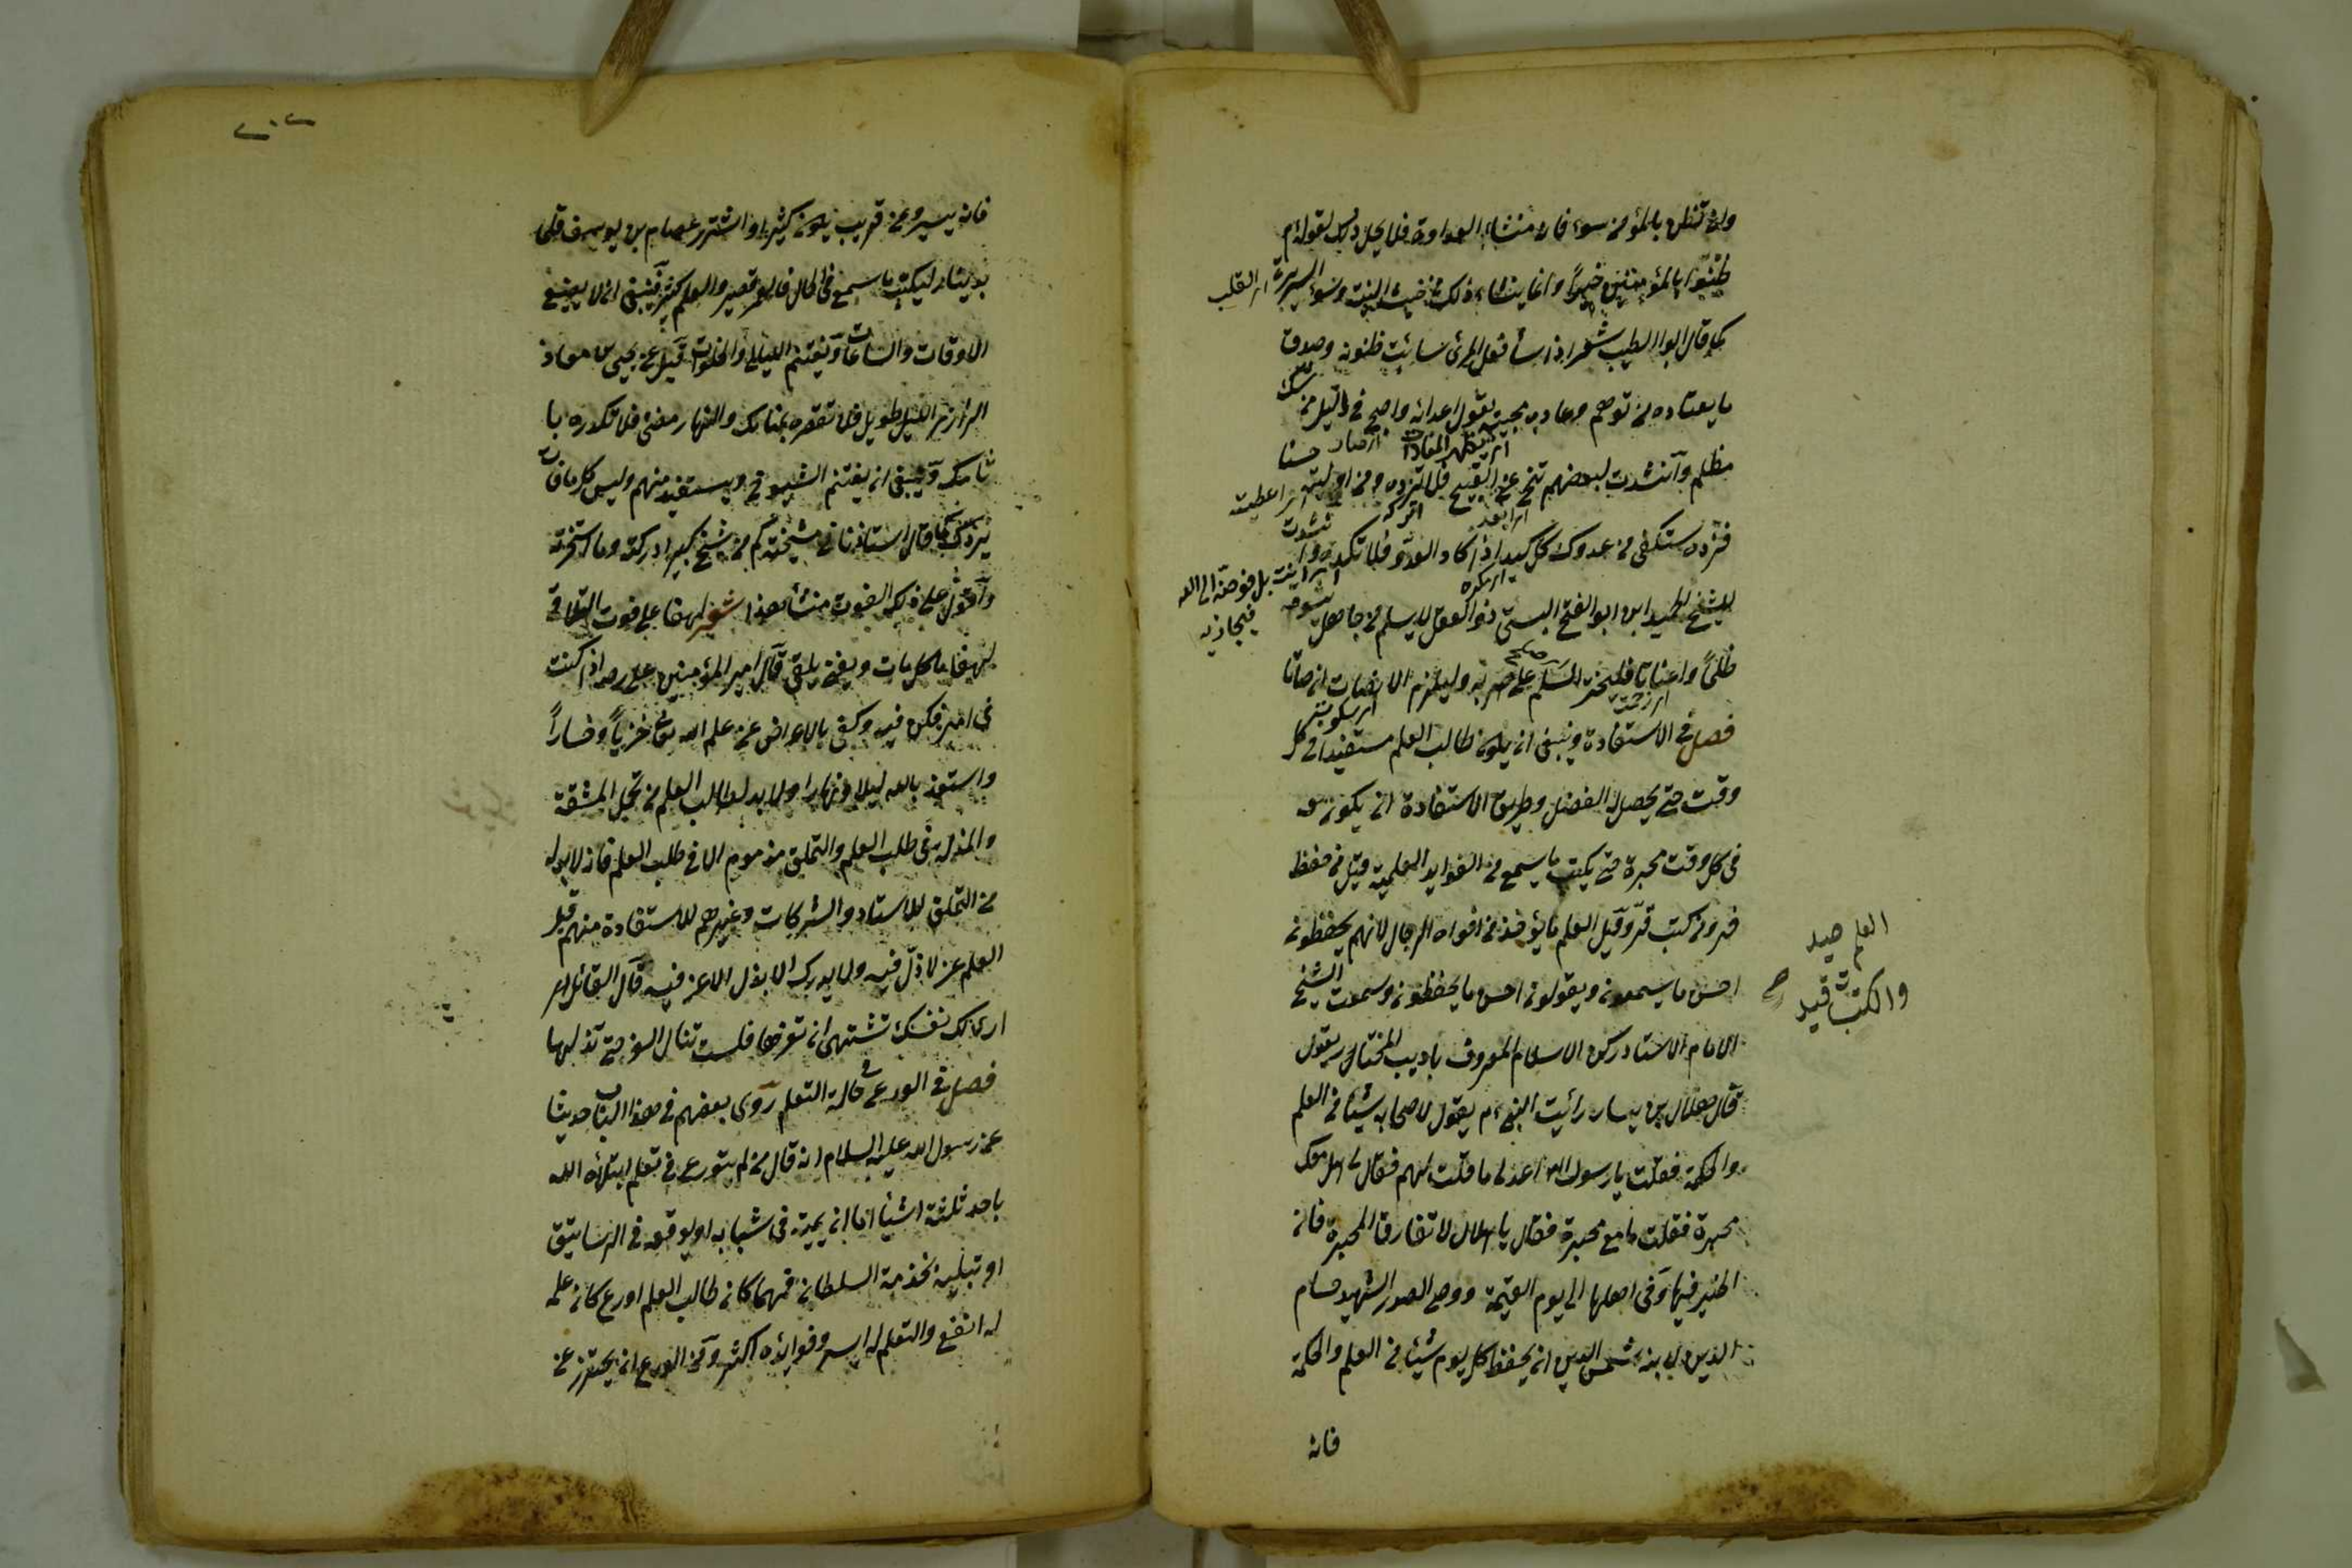 وان تظن بالمؤمن سوء فانه منشاء العداوة فلا يحل ذلك لقوله م
ظنوا بالمؤمنين خيرا وانما ينشاء ذلك من خبث النية وسوء السريرة
اى القلب
كما قال ابو الطيب شعر اذا ساء فعل المرئ سائت ظنونه وصدق
ما يعتاده من توهم وعادى محبيه بقول اعدائه واصبح فى ليل من
شك
مظلم وانشدت لبعضهم تنح عن القبيح فلا ترده ومن اوليته
حسنا
اى اعطيت
فزده ستكفى من عدوك كل كيد اذا كاد العدو فلا تكده
وانشدت
بل فوضه الى الله
فيجازيه
للشيخ العميد ابن ابو الفتح البستى ذو العقل لا يسلم من جاهل
يسومه
ظلما واعناتا فليختر السلم على حربه وليلزم الانصات انصاتا
فصل فى الاستفادة وينبغى ان يكون طالب العلم مستفيدا فى كل
وقت حتى يحصل له الفضل وطريق الاستفادة ان يكون معه
فى كل وقت محبرة حتى يكتب ما يسمع من الفوايد العلمية قيل من حفظ
فر ومن كتب قر وقيل العلم ما يؤخذ من افواه الرجال لانهم يحفظون
احسن ما يسمعون ويقولون احسن ما يحفظون وسمعت الشيخ
العلم صيد
والكتب قيد
الامام الاستاد ركن الاسلام المعروف باديب المختار يقول
قال هلال بن يسار رأيت النبى م يقول لاصحابه شيئا من العلم
والحكمة فقلت يا رسول الله اعد لى ما قلت لهم فقال لى هل معك
محبرة فقلت ما مع محبرة فقال يا هلال لا تفارق المحبرة فان
الخير فيها وفى اهلها الى يوم القيمة ووصى الصدر الشهيد حسام
الدين لابنه شمس الدين ان يحفظ كل يوم شيئا من العلم والحكمة
فانه
٢٠٢
فانه يسير وعن قريب يكون كثيرا واشترى عصام بن يوسف قلما
بدينار ليكتب ما يسمع فى الحال فالعمر قصير والعلم كثير فينبغى ان لا يضيع
الاوقات والساعات ويغتنم الليالى والخلوات قيل عن يحيى بن معاذ
الرازى الليل طويل فلا تقصره بمنامك والنهار مضئ فلا تكدره با
ثامك وينبغى ان يغتنم الشيوخ ويستفيد منهم وليس كل ما فات
يدرك كما قال استاذنا فى مشيخته كم من شيخ كبير ادركته وما استخبرته
واقول على ذلك الفوت منشأ هذا شعر لهفا على فوت التلاقى
لهفا ما كل ما فات ويفنى يلقى قال امير المؤمنين على رض اذا كنت
فى امر فكن فيه وكفى بالاعراض عن علم الله تعالى خزيا وخسارا
واستعذ بالله ليلا ونهارا ولا بد لطالب العلم من تحمل المشقة
والمذلة فى طلب العلم والتملق مذموم الا فى طلب العلم فانه لا بد له
من التملق للاستاد والشركات وغيرهم للاستفادة منهم قيل
العلم عز لا ذل فيه ولا يدرك الا بذل لا عز فيه قال القائل
ارى لك نفسك تشتهى ان تعزها فلست تنال العز حتى تذلها
فصل فى الورع فى حالة التعلم روى بعضهم فى هذا الباب حديثا
عن رسول الله عليه السلام انه قال من لم يتورع فى تعلم ابتلاه الله
باحد ثلثة اشيا اما ان يميته فى شبابه او يوقعه فى الرساتيق
او تبليه بخدمة السلطان فمهما كان طالب العلم اورع كان علمه
له انفع والتعلم له ايسر وفوائده اكثر ومن الورع ان يحترز عن